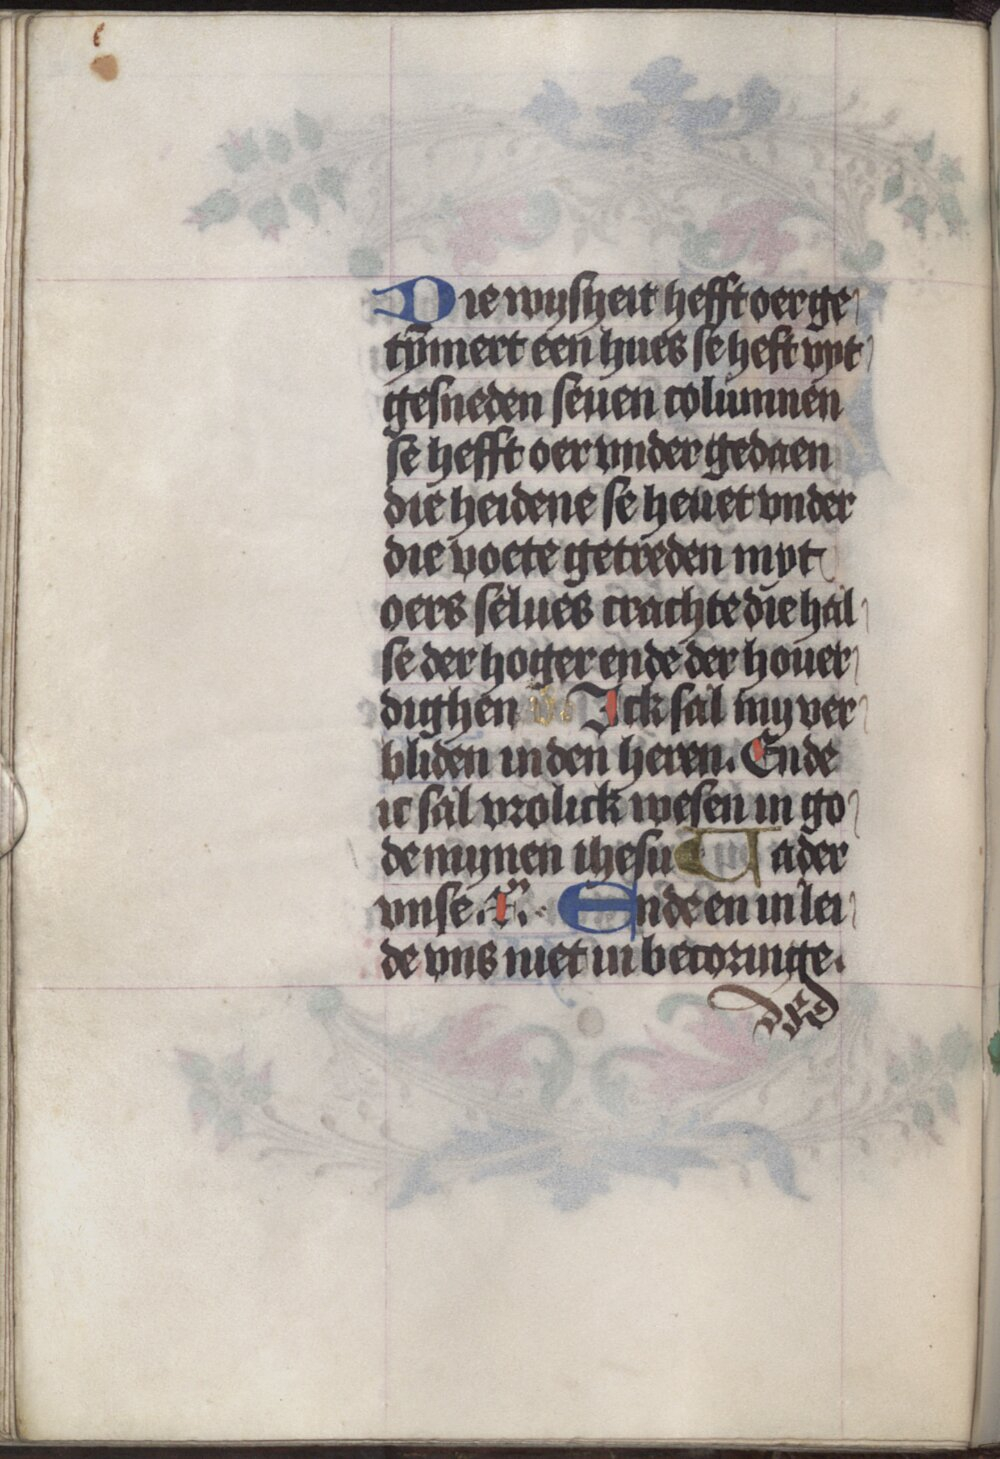 Die wysheit hefft oer ge
tȳmert een hues se heft vyt
gesneden seuen columnen
se hefft oer vnder gedaen
die heidene se heuet vnder
die voete getreden myt
oers selues crachte die hal
se der hoger ende der houer
dighen v. Ick sal my ver
bliden in den heren. Ende
ic sal vrolick wesen in go
de mynen ihesu Uader
vnse. Ende en in lei
de vns niet in becoringe.